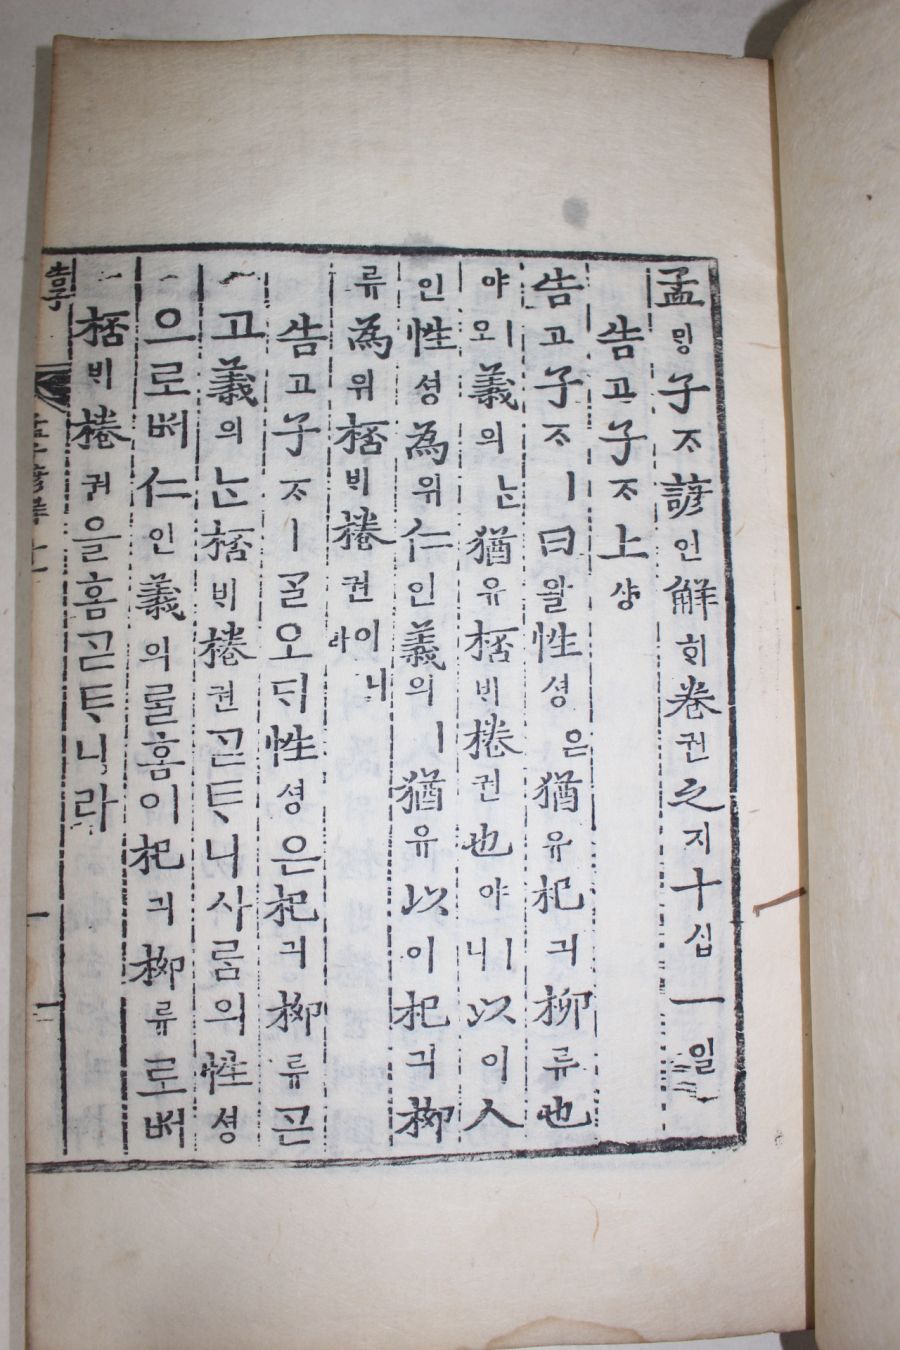 孟ᄆᆡᆼ子ᄌᆞ諺언解ᄒᆡ卷권之지十십一일
告고子ᄌᆞ上샹
告고子ᄌᆞㅣ曰왈性셩은猶유杞긔柳류也
야ㅣ오義의ᄂᆞᆫ猶유桮ᄇᆡ棬권也야ㅣ니以이人
인性셩為위仁인義의ㅣ猶유以이杞긔柳
류為위桮ᄇᆡ棬권이니라
告고子ᄌᆞㅣᄀᆞᆯ오ᄃᆡ性셩은杞긔柳류ᄀᆞᆮ
고義의ᄂᆞᆫ桮ᄇᆡ棬권ᄀᆞᆮᄐᆞ니사ᄅᆞᆷ의性셩
으로ᄡᅥ仁인義의ᄅᆞᆯ홈이杞긔柳류로ᄡᅥ
桮ᄇᆡ棬권을홈ᄀᆞᆮᄐᆞ니라
告子